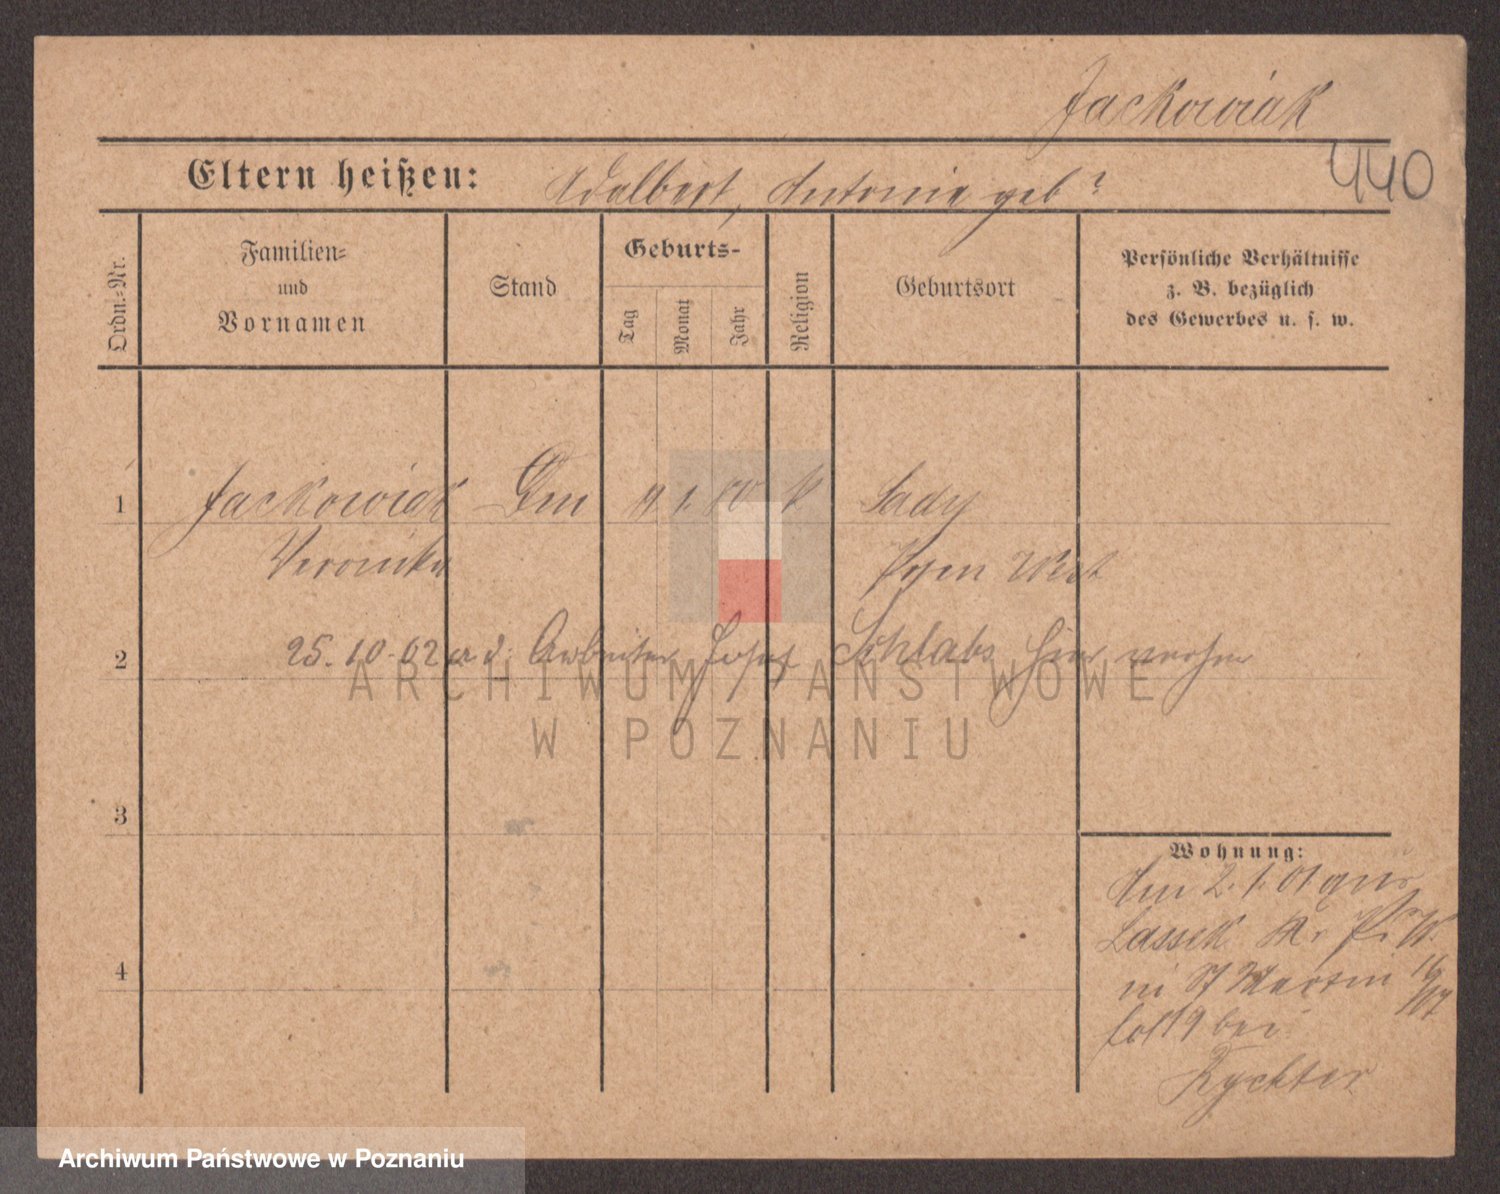 Jackowiak
440
Eltern heißen: Adalbert, Antonie geb ?
Ordn.-Nr.
Familien-
und
Vornamen
Stand
Geburts-
Tag
Monat
Jahr
Religion
Geburtsort
Persönliche Verhältnisse
z. B. bezüglich
des Gewerbes u. s. w.
1 Jackowiak 9 1 80 k Sady
Veronika Posen West
2 25. 10. 02 a d. Arbeiter Josef Schlabs hier
ARCHIWUM PAŃSTWOWE
W POZNANIU
3
Wohnung:
Am 2. 1. 01 aus
Lassek Kr P. W.
in St Martin
4
bei
Rychter
Archiwum Państwowe w Poznaniu